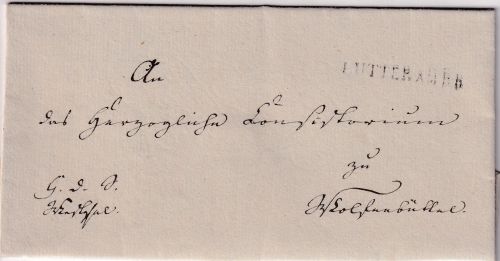 LUTTER A/B B
An
das Herzogliche Consistorium
zu
H. d. S.
Wolfenbüttel.
Westphal.